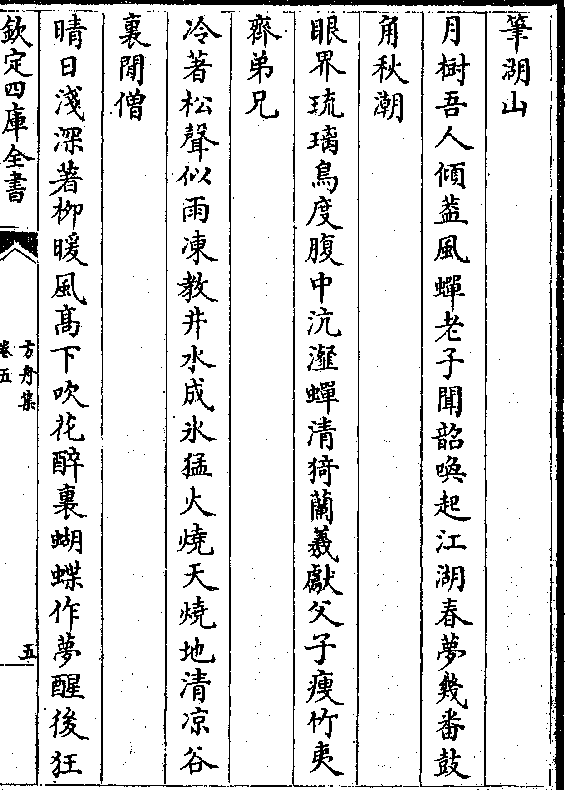 筆湖山
月樹吾人傾葢風蟬老子聞韶喚起江湖春夢幾番鼓
角秋潮
眼界琉璃鳥度腹中沆瀣蟬清猗蘭羲獻父子瘦竹夷
齊弟兄
冷著松聲似雨凍教井水成氷猛火燒天燒地清凉谷
裏閒僧
晴日淺深著柳暖風髙下吹花醉裏蝴蝶作夢醒後狂
欽定四庫全書
方舟集
卷五
五